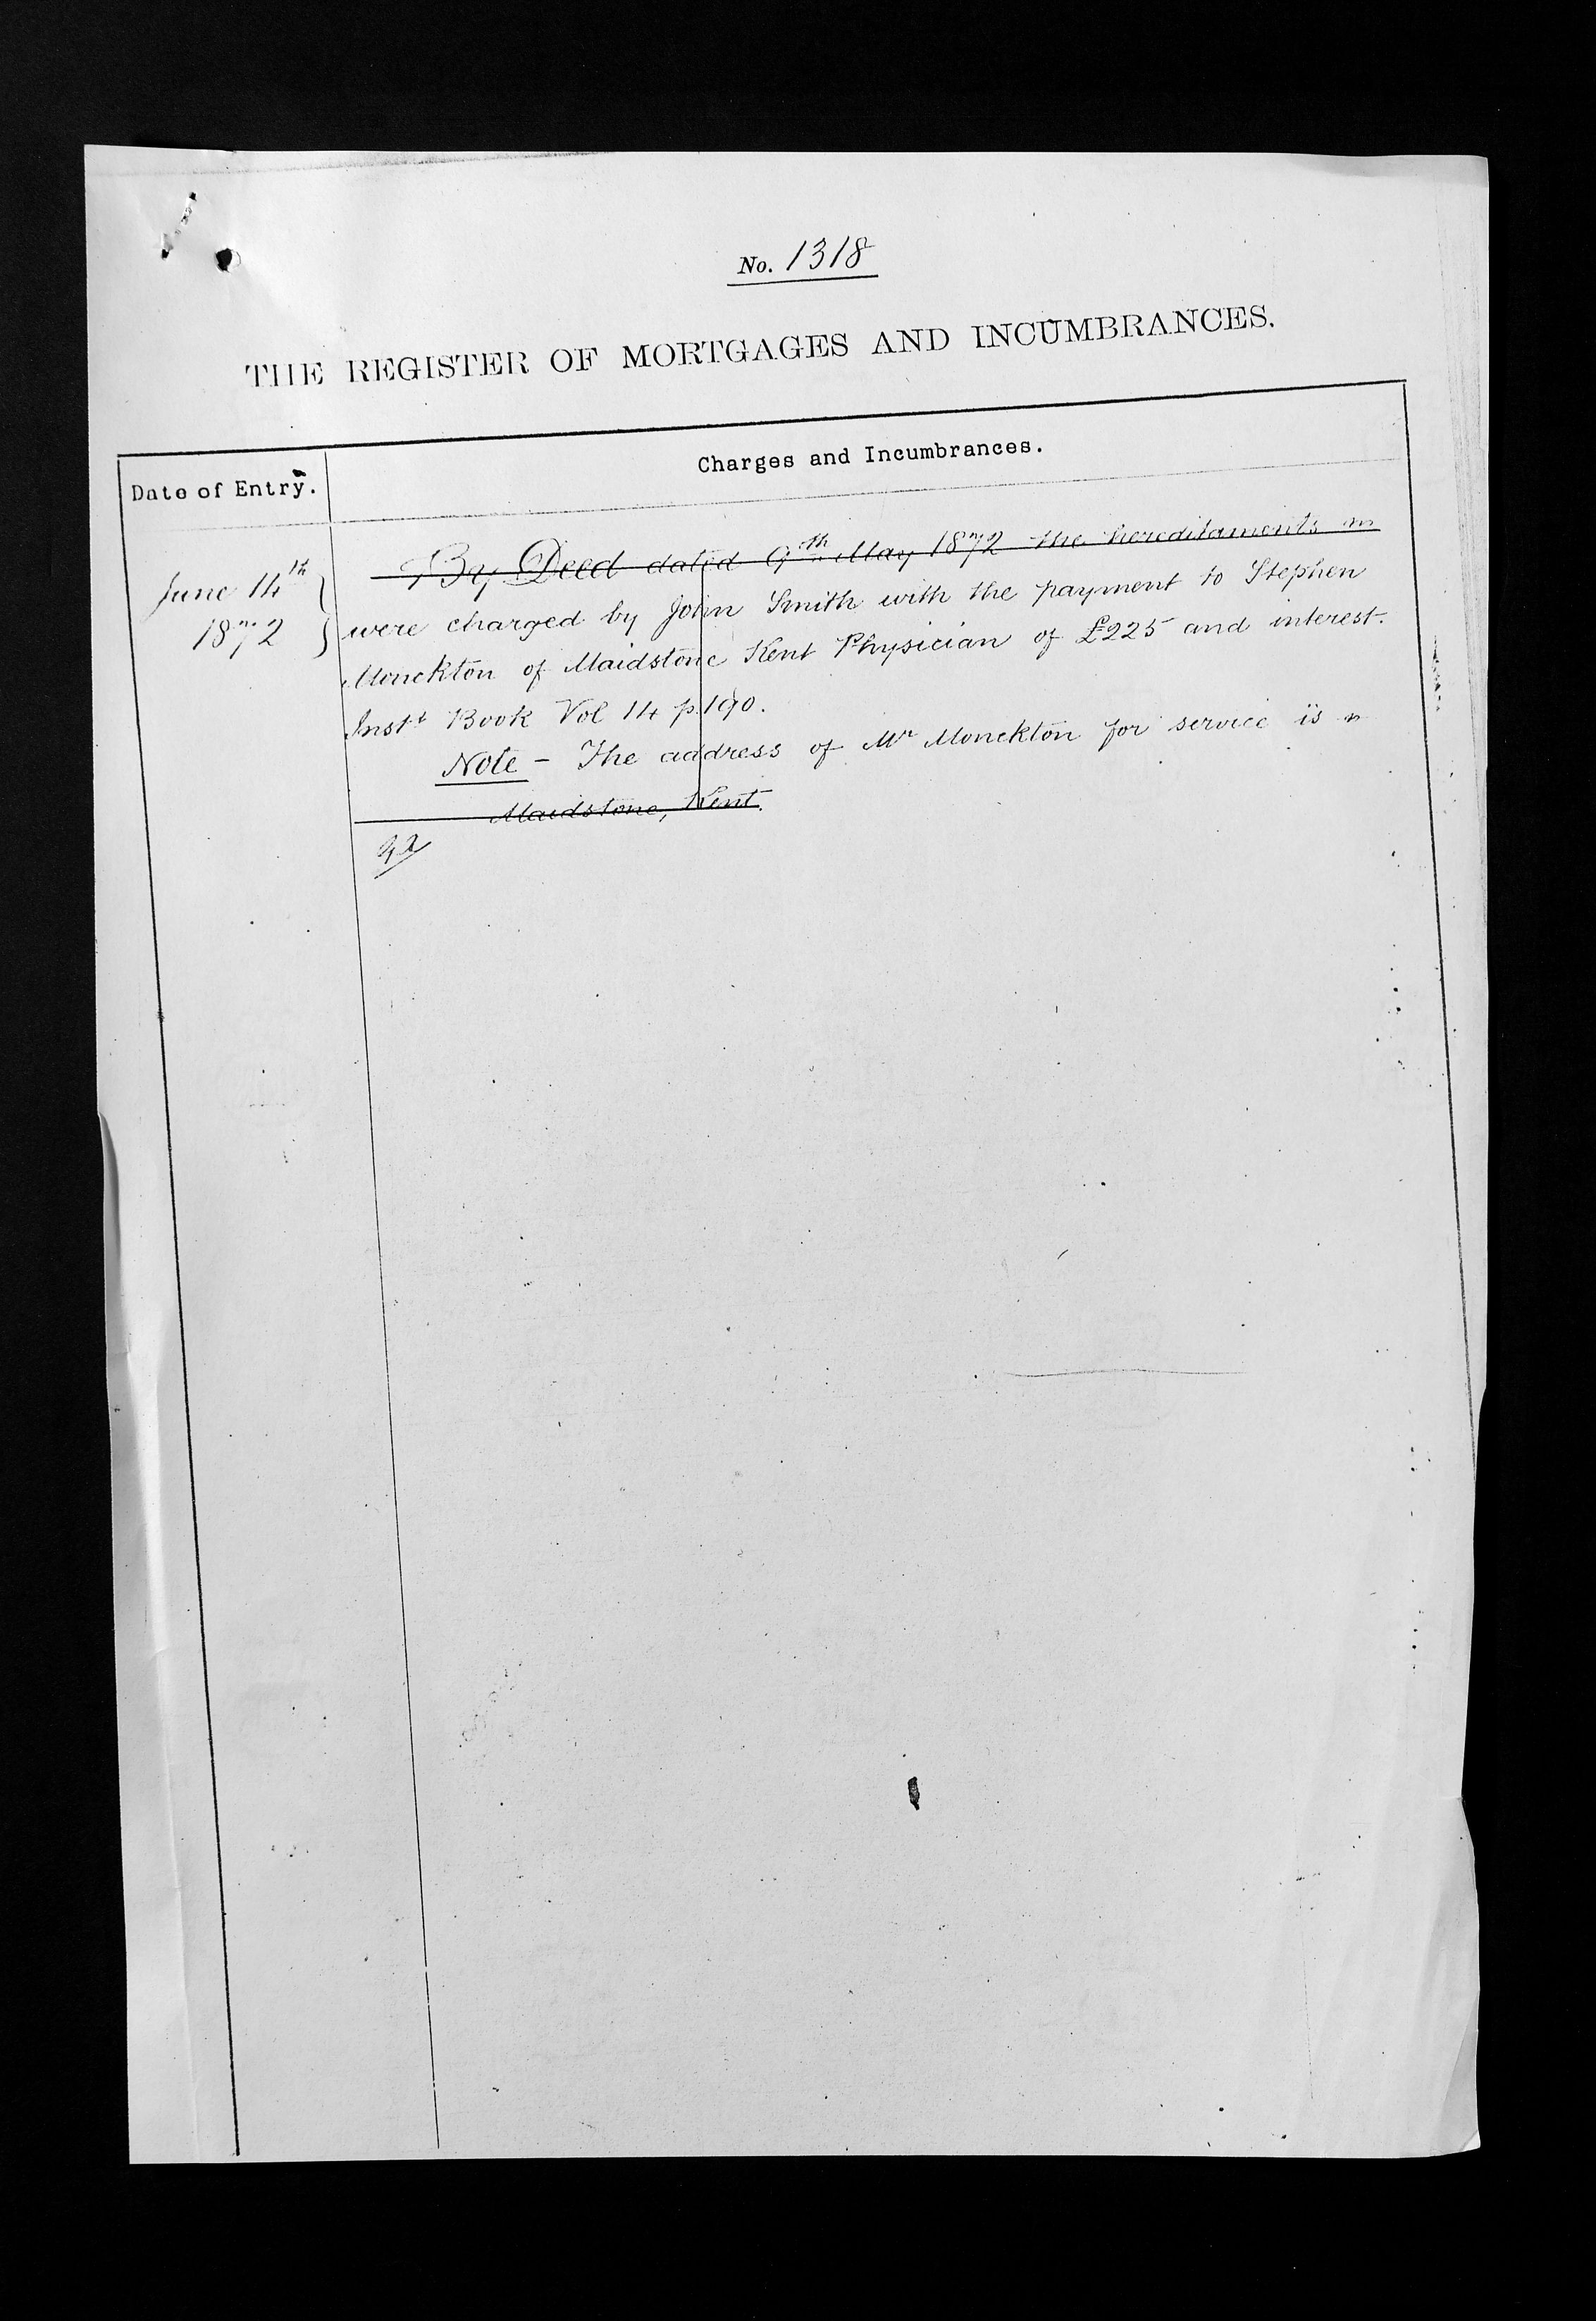 No. 1318
THE REGISTER OF MORTGAGES AND INCUMBRANCES.
Date of Entry.
Charges and Incumbrances.
June 14th
1872
By Deed dated 9th May 1872 the hereditaments
were charged by John Smith with the payment to Stephen
Monckton of Maidstone Kent Physician of £225 and interest.
Instt Book Vol 14 p.190.
Note - The address of Mr Monckton for service is
Maidstone, Kent.